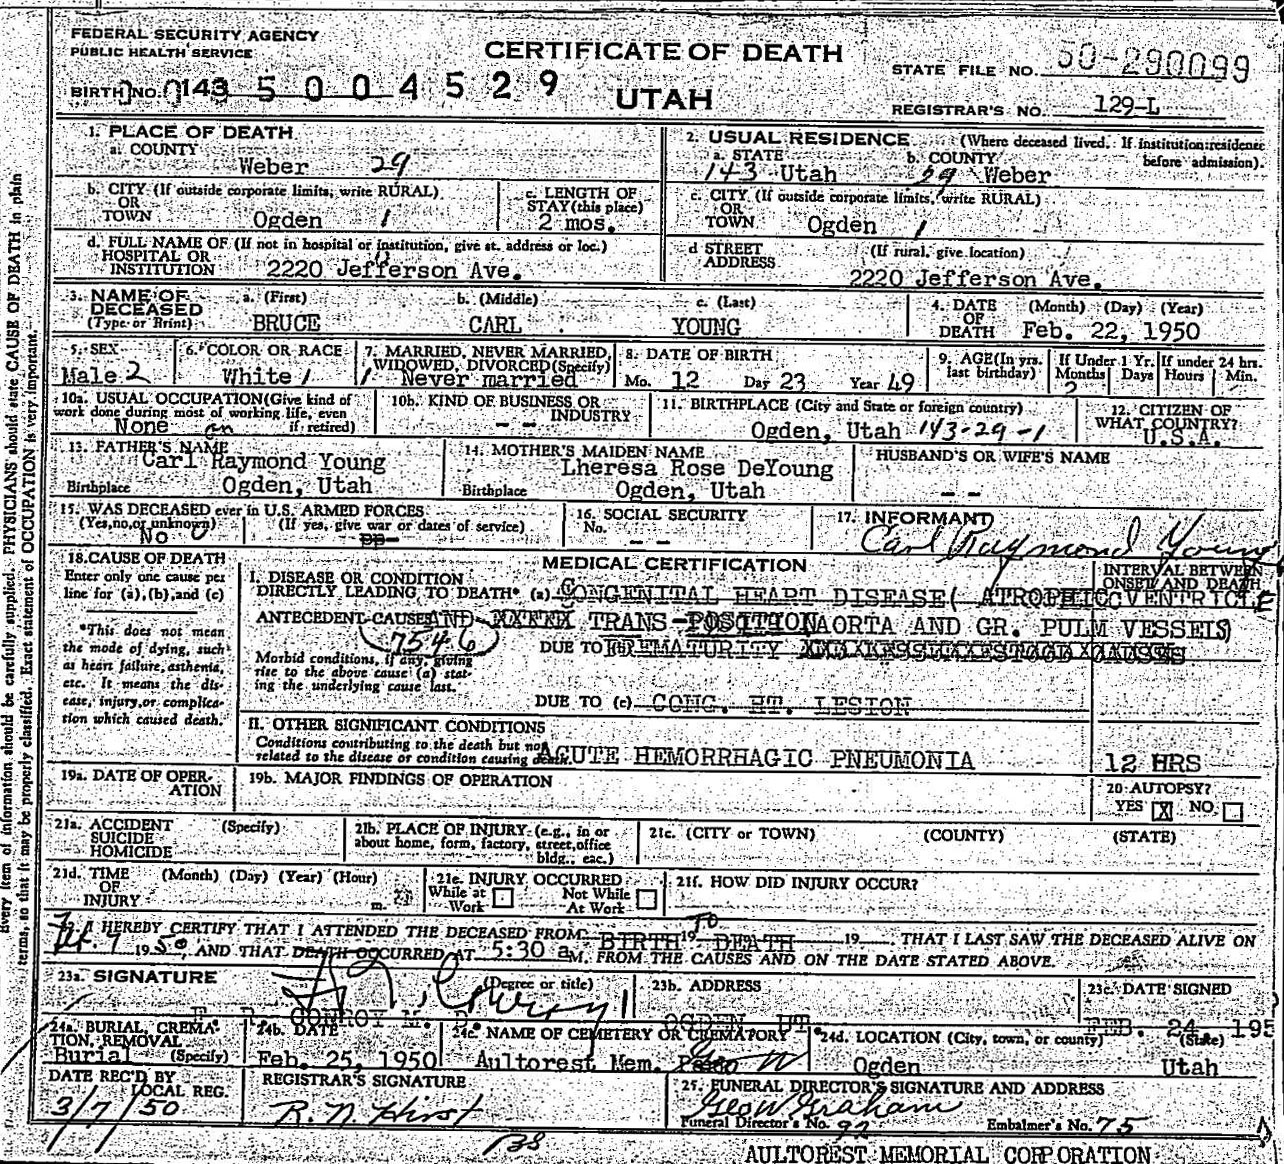 FEDERAL SECURITY AGENCY
PUBLIC HEALTH SERVICE
CERTIFICATE OF DEATH
STATE FILE NO. 50-290099
BIRTH NO. 143 5 0 0 4 5 2 9
UTAH
REGISTRAR'S NO. 129-L
1. PLACE OF DEATH
a. COUNTY
Weber 29
2. USUAL RESIDENCE (Where deceased lived. If institution: residence before admission).
a. STATE b. COUNTY
143 Utah 29 Weber
b. CITY (If outside corporate limits, write RURAL)
OR
TOWN Ogden 1
c. LENGTH OF
STAY (this place)
2 mos.
c. CITY (If outside corporate limits, write RURAL)
OR
TOWN Ogden 1
d. FULL NAME OF (If not in hospital or institution, give st. address or loc.)
HOSPITAL OR
INSTITUTION 2220 Jefferson Ave.
d STREET (If rural, give location)
ADDRESS
2220 Jefferson Ave.
3. NAME OF a. (First) b. (Middle) c. (Last)
DECEASED
(Type or Print) BRUCE CARL YOUNG
4. DATE (Month) (Day) (Year)
OF
DEATH Feb. 22, 1950
5. SEX
Male 2
6. COLOR OR RACE
White 1
7. MARRIED, NEVER MARRIED,
WIDOWED, DIVORCED (Specify)
1 Never married
8. DATE OF BIRTH
Mo. 12 Day 23 Year 49
9. AGE (In yrs.
last birthday)
If Under 1 Yr.
Months Days
2
If under 24 hrs.
Hours Min.
10a. USUAL OCCUPATION (Give kind of
work done during most of working life, even
if retired)
None
10b. KIND OF BUSINESS OR
INDUSTRY
- -
11. BIRTHPLACE (City and State or foreign country)
Ogden, Utah 143-29-1
12. CITIZEN OF
WHAT COUNTRY?
U.S.A.
13. FATHER'S NAME
Carl Raymond Young
Birthplace Ogden, Utah
14. MOTHER'S MAIDEN NAME
Lheresa Rose DeYoung
Birthplace Ogden, Utah
HUSBAND'S OR WIFE'S NAME
- -
15. WAS DECEASED ever in U.S. ARMED FORCES
(Yes, no, or unknown) (If yes, give war or dates of service)
No
16. SOCIAL SECURITY
No. - -
17. INFORMANT
Carl Raymond Young
18. CAUSE OF DEATH
Enter only one cause per
line for (a), (b), and (c)
*This does not mean
the mode of dying, such
as heart failure, asthenia,
etc. It means the dis-
ease, injury, or complica-
tion which caused death.
MEDICAL CERTIFICATION
INTERVAL BETWEEN
ONSET AND DEATH
I. DISEASE OR CONDITION
DIRECTLY LEADING TO DEATH* (a) CONGENITAL HEART DISEASE ( ATROPHIC VENTRICLE
ANTECEDENT CAUSES AND TRANS-POSITION AORTA AND GR. PULM VESSELS)
7546
Morbid conditions, if any, giving
rise to the above cause (a) stat-
ing the underlying cause last.
DUE TO PREMATURITY
DUE TO (c) CONG. HT. LESION
II. OTHER SIGNIFICANT CONDITIONS
Conditions contributing to the death but not
related to the disease or condition causing death.
ACUTE HEMORRHAGIC PNEUMONIA 12 HRS
19a. DATE OF OPER-
ATION
19b. MAJOR FINDINGS OF OPERATION
20 AUTOPSY?
YES X NO
21a. ACCIDENT (Specify)
SUICIDE
HOMICIDE
21b. PLACE OF INJURY (e.g., in or
about home, form, factory, street, office
bldg., eac.)
21c. (CITY or TOWN) (COUNTY) (STATE)
21d. TIME (Month) (Day) (Year) (Hour)
OF
INJURY m.
21e. INJURY OCCURRED
While at Work Not While At Work
21f. HOW DID INJURY OCCUR?
I HEREBY CERTIFY THAT I ATTENDED THE DECEASED FROM BIRTH 19 TO DEATH 19 , THAT I LAST SAW THE DECEASED ALIVE ON
1950, AND THAT DEATH OCCURRED AT 5:30 a M. FROM THE CAUSES AND ON THE DATE STATED ABOVE.
23a. SIGNATURE (Degree or title)
CONROY M. D.
23b. ADDRESS
OGDEN, UT
23c. DATE SIGNED
FEB. 24, 195
24a. BURIAL, CREMA-
TION, REMOVAL
Burial (Specify)
24b. DATE
Feb. 25, 1950
24c. NAME OF CEMETERY OR CREMATORY
Aultorest Mem.
24d. LOCATION (City, town, or county) (State)
Ogden Utah
DATE REC'D BY
LOCAL REG.
3/7/50
REGISTRAR'S SIGNATURE
R. N. Hirst
25. FUNERAL DIRECTOR'S SIGNATURE AND ADDRESS
Geo W Graham
Funeral Director's No. 92 Embalmer's No. 75
AULTOREST MEMORIAL CORPORATION
Every item of information should be carefully supplied. PHYSICIANS should state CAUSE OF DEATH in plain
terms, so that it may be properly classified. Exact statement of OCCUPATION is very important.